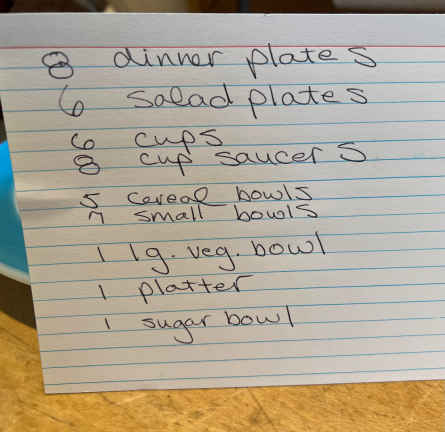 8 dinner plates
6 salad plates
6 cups
8 cup saucers
5 cereal bowls
7 small bowls
1 lg. veg. bowl
1 platter
1 sugar bowl